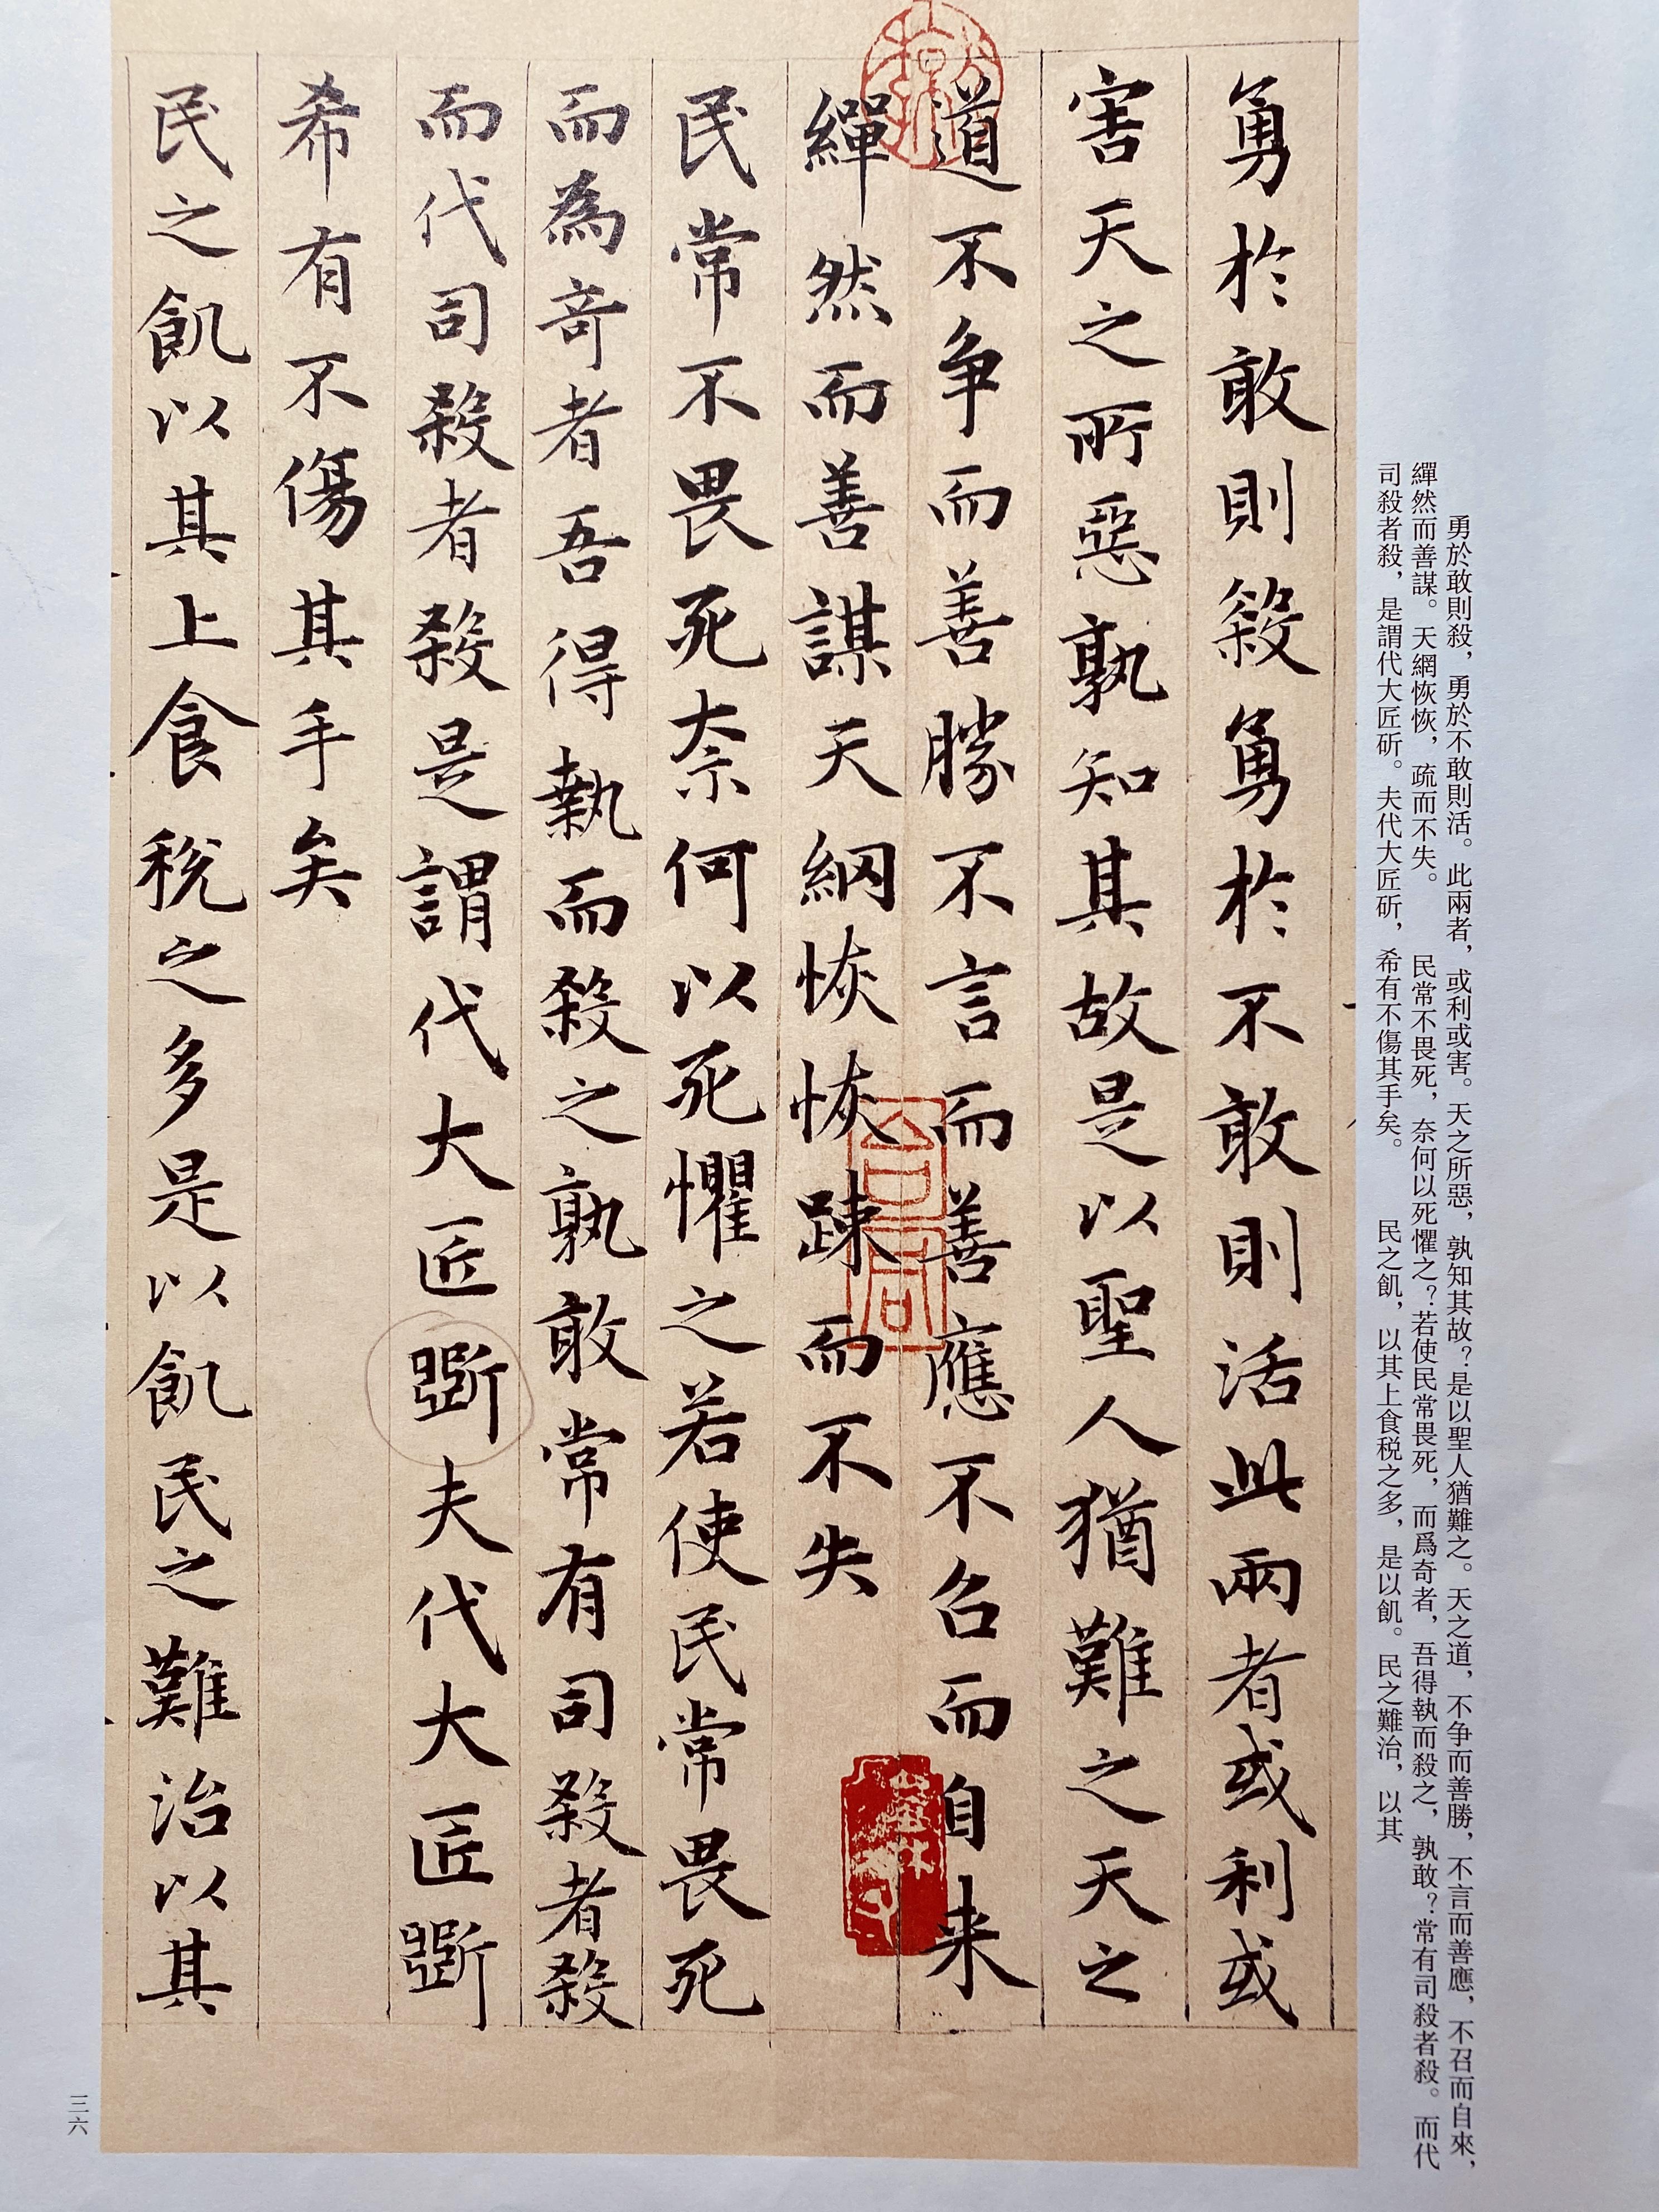 勇於敢則殺，勇於不敢則活。此兩者，或利或害。天之所惡，孰知其故？是以聖人猶難之。天之道，不争而善勝，不言而善應，不召而自來，
繟然而善謀。天網恢恢，疏而不失。　民常不畏死，奈何以死懼之？若使民常畏死，而爲奇者，吾得執而殺之，孰敢？常有司殺者殺。而代
司殺者殺，是謂代大匠斫。夫代大匠斫，希有不傷其手矣。　民之飢，以其上食税之多，是以飢。民之難治，以其
勇於敢則殺勇於不敢則活此兩者或利或
害天之所惡孰知其故是以聖人猶難之天之
道不争而善勝不言而善應不召而自来
繟然而善謀天網恢恢踈而不失
民常不畏死奈何以死懼之若使民常畏死
而為奇者吾得執而殺之孰敢常有司殺者殺
而代司殺者殺是謂代大匠斲夫代大匠斲
希有不傷其手矣
民之飢以其上食税之多是以飢民之難治以其
三六